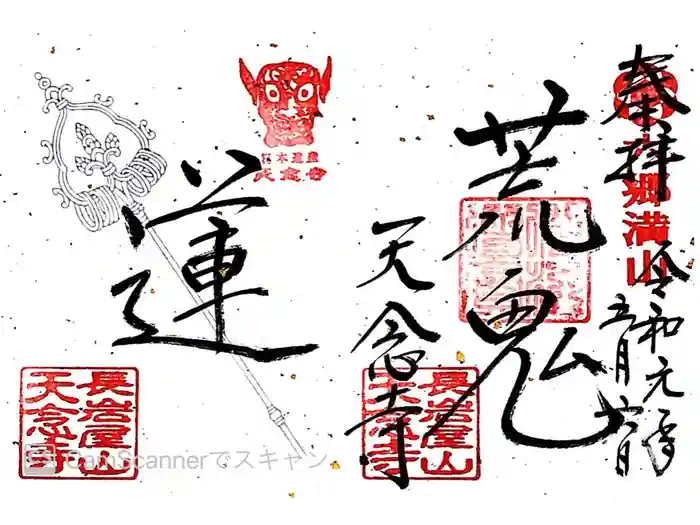 奉拝
郷満山
令和元年
五月六日
荒鬼
天念寺
長岩屋山
天念寺
天念寺
運
長岩屋山
天念寺
CamScannerでスキャン